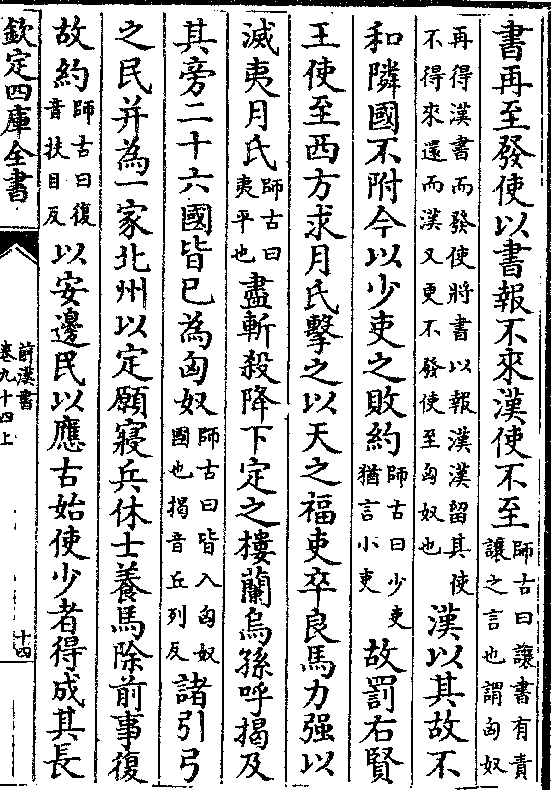 書再至發使以書報不來漢使不至師古曰讓書有責讓之言也謂匈奴
再得漢書而發使將書以報漢漢留其使不得來還而漢又更不發使至匈奴也漢以其故不
和隣國不附今以少吏之敗約師古曰少吏猶言小吏故罰右賢
王使至西方求月氏擊之以天之福吏卒良馬力强以
滅夷月氏師古曰夷平也盡斬殺降下定之樓蘭烏孫呼揭及
其旁二十六國皆已為匈奴師古曰皆入匈奴國也揭音丘列反諸引弓
之民并為一家北州以定願寢兵休士養馬除前事復
故約師古曰復音扶目反以安邊民以應古始使少者得成其長
欽定四庫全書
前漢書
卷九十四上
十四